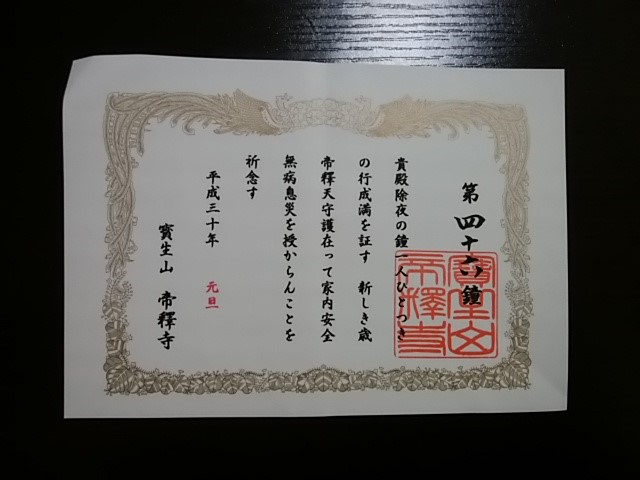 第四十六鐘
貴殿除夜の鐘一人ひとつき
の行成満を証す 新しき歳
帝釋天守護在って家内安全
無病息災を授からんことを
祈念す
平成三十年 元旦
寳生山 帝釋寺
寳生山
帝釋寺